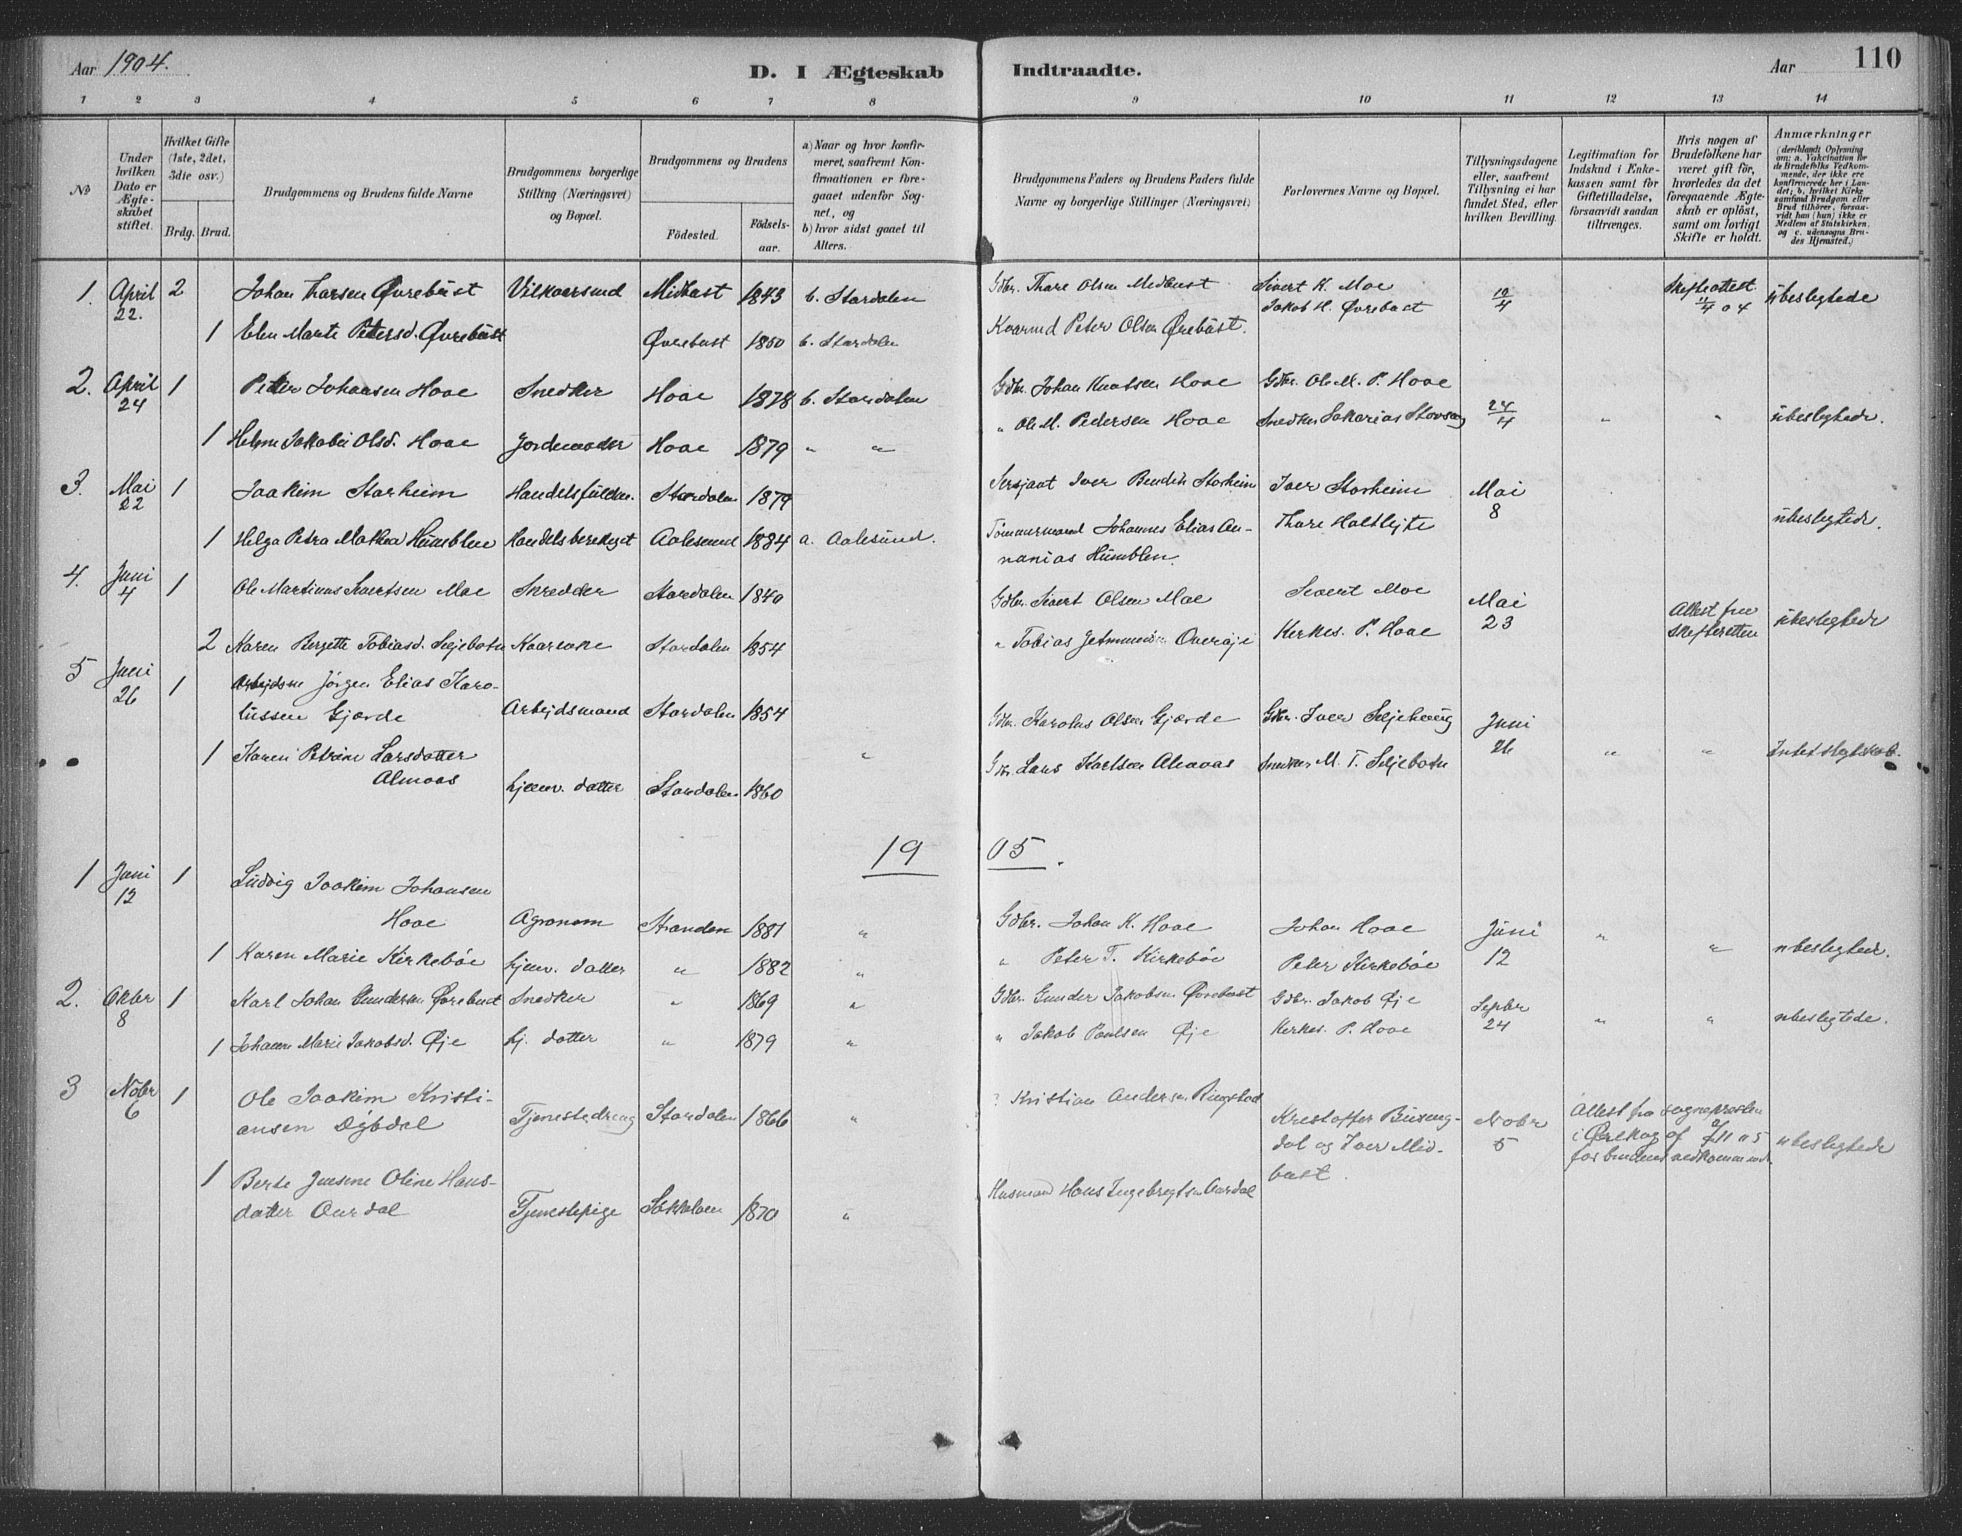 Aar 1904.
D. I Ægteskab Indtraadte.
Aar
110
1 2 3 4 5 6 7 8 9 10 11 12 13 14
No
Under hvilken Dato er Ægteskabet stiftet.
Hvilket Gifte (1ste, 2det, 3die osv.)
Brdg. Brud.
Brudgommens og Brudens fulde Navne
Brudgommens borgerlige Stilling (Næringsvei) og Bopæl.
Brudgommens og Brudens
Födested.
Födselsaar.
a) Naar og hvor konfirmeret, saafremt Konfirmationen er foregaaet udenfor Sognet, og
b) hvor sidst gaaet til Alters.
Brudgommens Faders og Brudens Faders fulde Navne og borgerlige Stillinger (Næringsvei)
Forlovernes Navne og Bopæl.
Tillysningsdagene eller, saafremt Tillysning ei har fundet Sted, efter hvilken Bevilling.
Legitimation for Indskud i Enkekassen samt för Giftetilladelse, forsaavidt saadan tiltrænges.
Hvis nogen af Brudefolkene har været gift för, hvorledes da det foregaaende Ægteskab er oplöst, samt om lovligt Skifte er holdt.
Anmærkninger (deriblandt Oplysning om: a. Vakcination for de Brudefolks Vedkommende, der ikke ere konfirmerede her i Landet; b. hvilket Kirkesamfund Brudgom eller Brud tilhörer, forsaavidt han (hun) ikke er Medlem af Statskirken, og c. udensogns Brudes Hjemsted.)
1. April 22. 2 Johan Tharsen Øvrebust Midbust 1843 b. Stordalen Gdbr. Thare Olsen Medbust Sivert K. Moe 10/4 Skifteattest 11/4 04 übeslegtede
Jakob H. Øvrebust
1 Elen Marte Petersd. Øvrebüst Øvrebust 1850 b. Stordalen Kvarmd Peter Olsen Ørebüst.
2. April 24 1 Peter Johansen Hoae Snedker Hoae 1878 b. Stordalen Gdbr. Johan Knutsen Hoae Gdbr. Ole M. P. Hoae 24/4 " " übeslegtede.
1 Helene Jakobü Olsd. Hoae Jordemoder Hoae 1879 " " " Ole M. Pedersen Hoae Snedker Sakarias
3. Mai 22 1 Joakim Storheim Handelsfuldm. Stordalen 1879 Sersjant Iver Bendik Storheim Iver Storheim Mai 8 übeslegtede.
1 Helga Petra Mathea Humblen Handelsberetiget Aalesund 1884 a. Aalesund. Tømmermand Johannes Elias Ananias Hümblen. Thore
4. Juni 4 1 Ole Martinus Sivertsen Moe Snedker Stordalen 1840 Gdbr. Sivert Olsen Moe Sivert Moe Mai 23 Attest fra Skifteretten übeslegtede
2 Karen Bergitte Tobiasd. Seljebotn Stordalen 1854 " Tobias Kirkes. P. Hoae
5 Juni 26 1 Arbejdsm Jørgen Elias Karolussen Gjærde Arbejdsmand Stordalen 1854 Gdbr. Karolus Olsen Gjærde Gdbr. Iver Seljehaug Juni 26 " " Intet slegtskab.
1 Karen Petrine Larsdatter Almaas hjemv. datter Stordalen 1860 " Gdbr. Lars Karlsen Almaas Snedker M. T. Seljebotn
1905.
1 Juni 12 1 Ludvig Joakim Johansen Hoae Agronom Stranden 1881 " Gdbr. Johan K. Hoae Johan Hoae Juni 12 " " ubeslegtede.
1 Karen Marie Kirkebøe hjemv. datter " 1882 " " Peter T. Kirkebøe Peter Kirkebøe
2. Oktbr 8 1 Karl Johan Gundersen Øvrebust Snedker " 1869 " Gdbr. Gunder Jakobsen Øvrebust Gdbr. Jakob Øje Septbr 24 " " ubeslegtede.
1 Johanne Marie Jakobsd. Øje hj. datter " 1879 " " Jakob Paulsen Øje Kirkes. P. Hoae
3 Nobr 6 1 Ole Joakim Kristiansen Dybdal Tjenestedreng Stordalen 1866 " " Kristian Andersen Ringstad Kristoffer Busengdal og Iver Midbust. Nobr 5 Attest fra sognepresten i Ørskog af 2/11 05 for brudens vedkommende ubeslegtede
1 Berte Jensine Oline Hansdatter Aurdal Tjenestepige 1870 " Husmand Hans Ingebrigtsen Aurdal